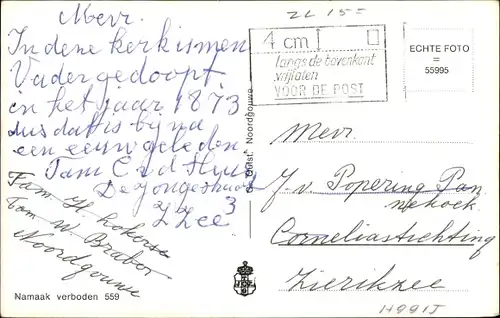 ZL 15=
Mevr.
In deze kerk is mijn
Vader gedoopt
en het jaar 1873
dus dat is bijna
een eeuw geleden
Fam C v d
De Jonge
Z Zee 3
Fam. H. Lokerse
Fam. W. Brabo
Noordgouwe
Namaak verboden 559
Uitst. Noordgouwe
4 cm
langs de bovenkant
vrijlaten
VOOR DE POST
ECHTE FOTO
=
55995
Mevr.
J. v. Popering Pan
nekoek.
Corneliastichting
Zierikzee
H991J